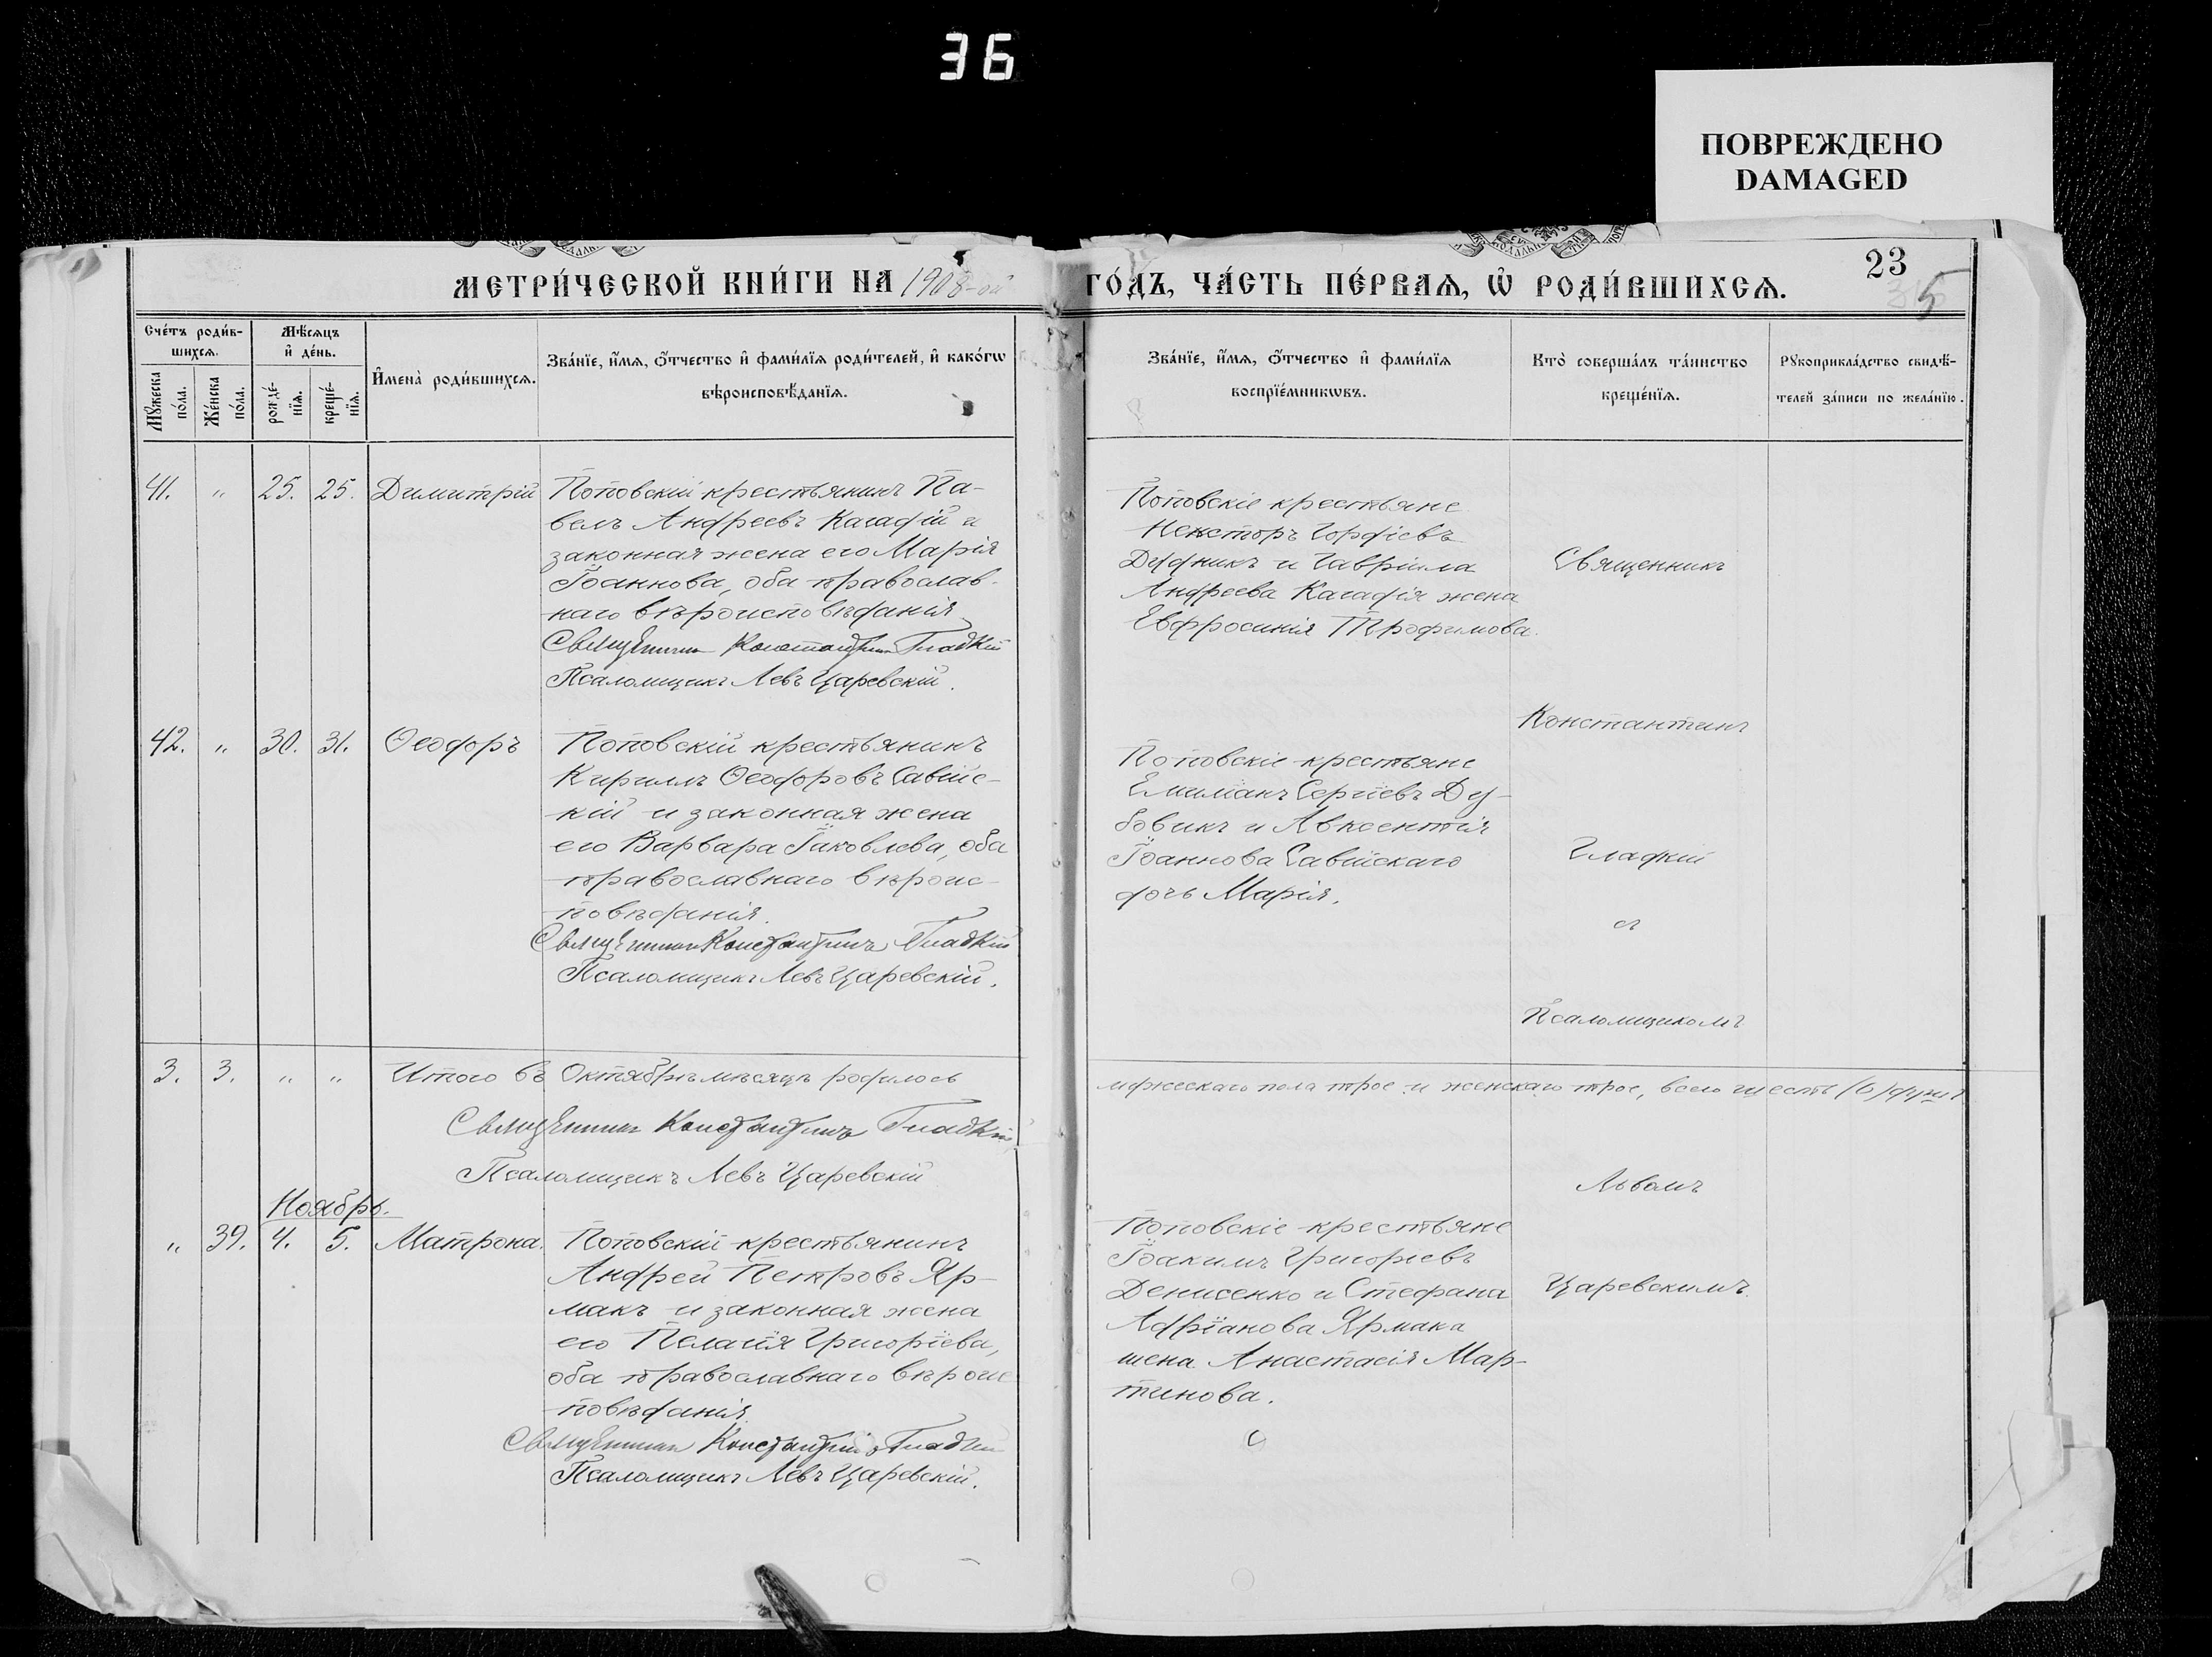 36
ПОВРЕЖДЕНО
DAMAGED
МЕТРИ́ЧЕСКОЙ КНИ́ГИ НА 1908-ой
ГО́ДЪ, ЧА́СТЬ ПЕ́РВАѦ, Ѡ҆ РОДИ́ВШИХСѦ.
23
5
Сче́тъ роди́в-
шихсѧ.
Мѣ́сѧцъ
и҆ де́нь.
Мꙋ́жеска
по́ла.
Же́нска
по́ла.
рожде́-
нїѧ.
креще́-
нїѧ.
И҆мена̀ роди́вшихсѧ.
Зва́нїе, и҆́мѧ, ѻ҆́тчество и҆ фами́лїѧ роди́телей, и҆ како́гѡ
вѣроисповѣ́данїѧ.
Зва́нїе, и҆́мѧ, ѻ҆́тчество и҆ фами́лїѧ
воспрїе́мникѡвъ.
Кто̀ соверша́лъ та́инство
креще́нїѧ.
Рꙋкоприкла́дство свидѣ́-
телей за́писи по жела́нїю.
41. " 25. 25. Димитрій
Поповскій крестьянинъ Па-
велъ Андреевъ Кагадій и
законная жена его Марія
Іоаннова, оба православ-
наго вѣроисповѣданія
Священникъ Константинъ Гладкій
Псаломщикъ Левъ Царевскій.
Поповскіе крестьяне
Нексторъ Гордіевъ
Дудникъ и Гавріила
Андреева Кагадія жена
Евфросинія Трофимова.
Священникъ
42. " 30. 31. Ѳеодоръ
Поповскій крестьянинъ
Кириллъ Ѳеодоровъ Савійс-
кій и законная жена
его Варвара Іаковлева, оба
православнаго вѣроис-
повѣданія.
Священникъ Константинъ Гладкій
Псаломщикъ Левъ Царевскій.
Поповскіе крестьяне
Емиліанъ Сергіевъ Ду-
бовикъ и Авксентія
Іоаннова Савійскаго
дочь Марія.
Константинъ
Гладкій
съ
Псаломщикомъ
3. 3. " " Итого въ Октябрѣ мѣсяцѣ родилось
мужескаго пола трое и женскаго трое, всего шесть (6) душъ
Священникъ Константинъ Гладкій
Псаломщикъ Левъ Царевскій
Львомъ
Ноябрь.
" 39. 4. 5. Матрона.
Поповскій крестьянинъ
Андрей Петровъ Яр-
макъ и законная жена
его Пелагія Григоріева,
оба православнаго вѣроис
повѣданія.
Священникъ Константинъ Гладкій
Псаломщикъ Левъ Царевскій.
Поповскіе крестьяне
Іоакимъ Григорьевъ
Денисенко и Стефана
Адріанова Ярмака
жена Анастасія Мар-
тинова.
Царевскимъ.